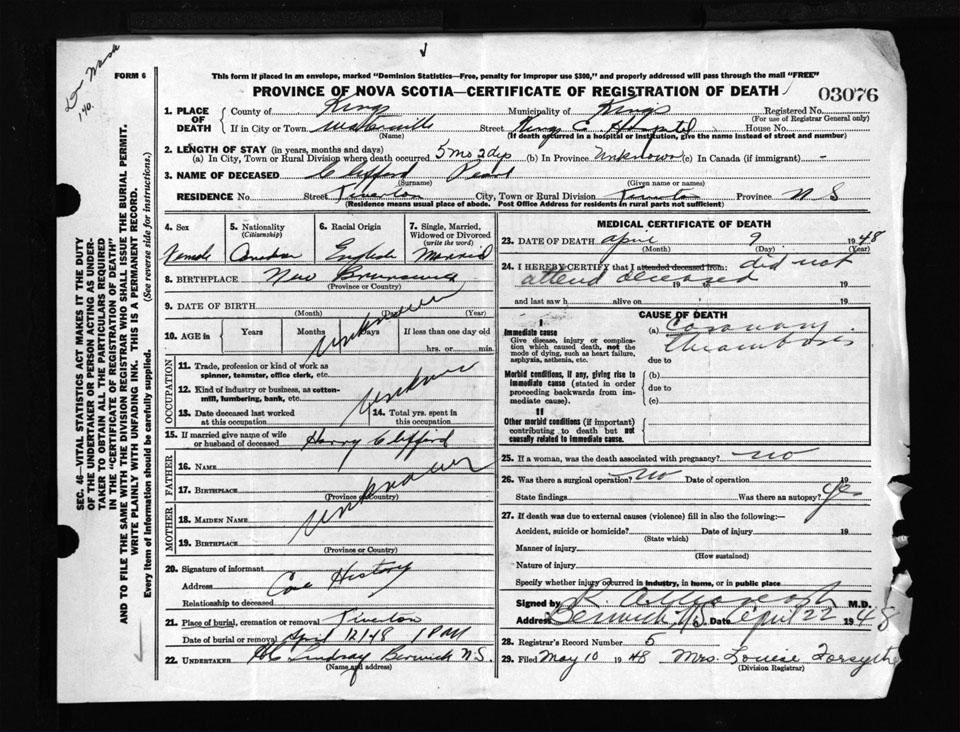 Dr Wash
140.
FORM 6
This form if placed in an envelope, marked "Dominion Statistics—Free, penalty for improper use $300," and properly addressed will pass through the mail "FREE"
PROVINCE OF NOVA SCOTIA—CERTIFICATE OF REGISTRATION OF DEATH
03076
1. PLACE OF DEATH
County of Kings Municipality of Kings Registered No.
(For use of Registrar General only)
If in City or Town Waterville Street Kings C. Hospital House No.
(Name) (If death occurred in a hospital or institution, give the name instead of street and number)
2. LENGTH OF STAY (in years, months and days)
(a) In City, Town or Rural Division where death occurred 5 mo 2 dys (b) In Province Unknown (c) In Canada (if immigrant) -
3. NAME OF DECEASED Clifford Pearl
(Surname) (Given name or names)
RESIDENCE No. Street Tiverton City, Town or Rural Division Tiverton Province N S
(Residence means usual place of abode. Post Office Address for residents in rural parts not sufficient)
4. Sex
Female
5. Nationality (Citizenship)
Canadian
6. Racial Origin
English
7. Single, Married, Widowed or Divorced (write the word)
Married
8. BIRTHPLACE New Brunswick
(Province or Country)
9. DATE OF BIRTH
(Month) (Day) (Year)
unknown
10. AGE in Years Months Days If less than one day old
hrs. or min.
OCCUPATION
11. Trade, profession or kind of work as spinner, teamster, office clerk, etc.
12. Kind of industry or business, as cotton-mill, lumbering, bank, etc.
unknown
13. Date deceased last worked at this occupation
14. Total yrs. spent in this occupation
15. If married give name of wife or husband of deceased Harry Clifford
FATHER
16. NAME
17. BIRTHPLACE
(Province or Country)
unknown
MOTHER
18. MAIDEN NAME
19. BIRTHPLACE
(Province or Country)
20. Signature of informant
Case History
Address
Relationship to deceased
21. Place of burial, cremation or removal Tiverton
Date of burial or removal April 12/48 1 P M
22. UNDERTAKER H C Lindsay Berwick N.S.
(Name and address)
MEDICAL CERTIFICATE OF DEATH
23. DATE OF DEATH April 9 1948
(Month) (Day) (Year)
24. I HEREBY CERTIFY that I attended deceased from: did not
attend deceased 19 to 19
and last saw h alive on 19
CAUSE OF DEATH
I
Immediate cause
Give disease, injury or complication which caused death, not the mode of dying, such as heart failure, asphyxia, asthenia, etc.
(a) Coronary
thrombosis
due to
Morbid conditions, if any, giving rise to immediate cause (stated in order proceeding backwards from immediate cause).
(b)
due to
(c)
II
Other morbid conditions (if important) contributing to death but not causally related to immediate cause.
25. If a woman, was the death associated with pregnancy? no
26. Was there a surgical operation? no Date of operation 19
State findings Was there an autopsy? yes
27. If death was due to external causes (violence) fill in also the following:—
Accident, suicide or homicide? Date of injury 19
(State which)
Manner of injury
(How sustained)
Nature of injury
Specify whether injury occurred in industry, in home, or in public place
Signed by K. M.D.
Address Berwick, N.S. Date April 22 1948
28. Registrar's Record Number 5
29. Filed May 10 1948 Mrs. Louise Forsythe
(Division Registrar)
SEC. 46—VITAL STATISTICS ACT MAKES IT THE DUTY
OF THE UNDERTAKER OR PERSON ACTING AS UNDER-
TAKER TO OBTAIN ALL THE PARTICULARS REQUIRED
IN THE "CERTIFICATE OF REGISTRATION OF DEATH"
AND TO FILE THE SAME WITH THE DIVISION REGISTRAR WHO SHALL ISSUE THE BURIAL PERMIT.
WRITE PLAINLY WITH UNFADING INK. THIS IS A PERMANENT RECORD.
Every item of information should be carefully supplied. (See reverse side for instructions.)